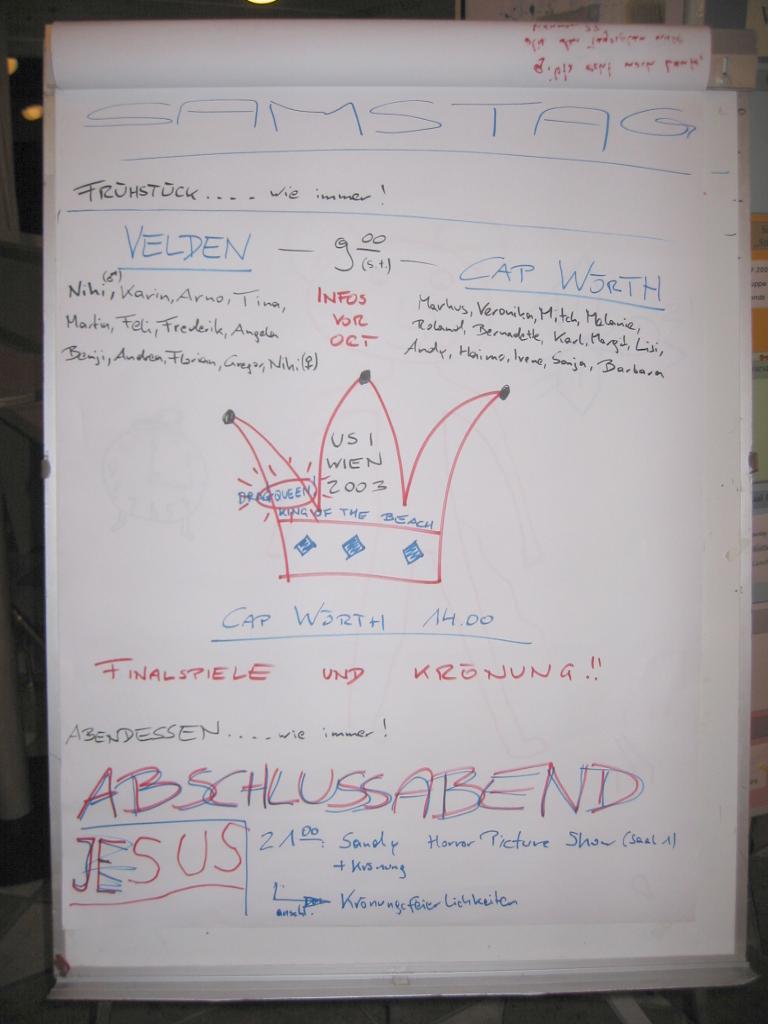 SAMSTAG
FRÜHSTÜCK.... wie immer!
VELDEN — 9 00 (s.t.) —
CAP WÖRTH
Nihi (♂), Karin, Arno, Tina,
Martin, Feli, Frederik, Angela
Benji, Andrea, Florian, Gregor, Nihi (♀)
INFOS
VOR
ORT
Markus, Veronika, Mitch, Melanie,
Roland, Bernadette, Karl, Margit, Lisi,
Andy, Haimo, Irene, Sonja, Barbara
USI
WIEN
2003
DRAGQUEEN!
KING OF THE BEACH
CAP WÖRTH 14.00
FINALSPIELE UND KRÖNUNG!!
ABENDESSEN.... wie immer!
ABSCHLUSSABEND
JESUS
21 00: Sandy Horror Picture Show (Saal 1)
+ Krönung
anschl. Krönungsfeierlichkeiten